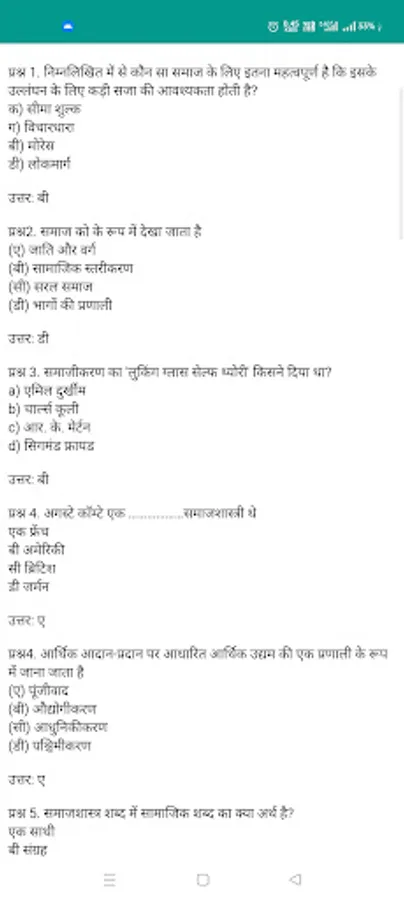 प्रश्न 1. निम्नलिखित में से कौन सा समाज के लिए इतना महत्वपूर्ण है कि इसके
उल्लंघन के लिए कड़ी सजा की आवश्यकता होती है?
क) सीमा शुल्क
ग) विचारधारा
बी) मोरेस
डी) लोकमार्ग
उत्तर: बी
प्रश्न2. समाज को के रूप में देखा जाता है
(ए) जाति और वर्ग
(बी) सामाजिक स्तरीकरण
(सी) सरल समाज
(डी) भागों की प्रणाली
उत्तर: डी
प्रश्न 3. समाजीकरण का 'लुकिंग ग्लास सेल्फ थ्योरी' किसने दिया था?
a) एमिल दुर्खीम
b) चार्ल्स कूली
c) आर. के. मेर्टन
d) सिगमंड फ्रायड
उत्तर: बी
प्रश्न 4. अगस्टे कॉम्टे एक ................समाजशास्त्री थे
एक फ्रेंच
बी अमेरिकी
सी ब्रिटिश
डी जर्मन
उत्तर: ए
प्रश्न4. आर्थिक आदान-प्रदान पर आधारित आर्थिक उद्यम की एक प्रणाली के रूप
में जाना जाता है
(ए) पूंजीवाद
(बी) औद्योगीकरण
(सी) आधुनिकीकरण
(डी) पश्चिमीकरण
उत्तर: ए
प्रश्न 5. समाजशास्त्र शब्द में सामाजिक शब्द का क्या अर्थ है?
एक साथी
बी संग्रह